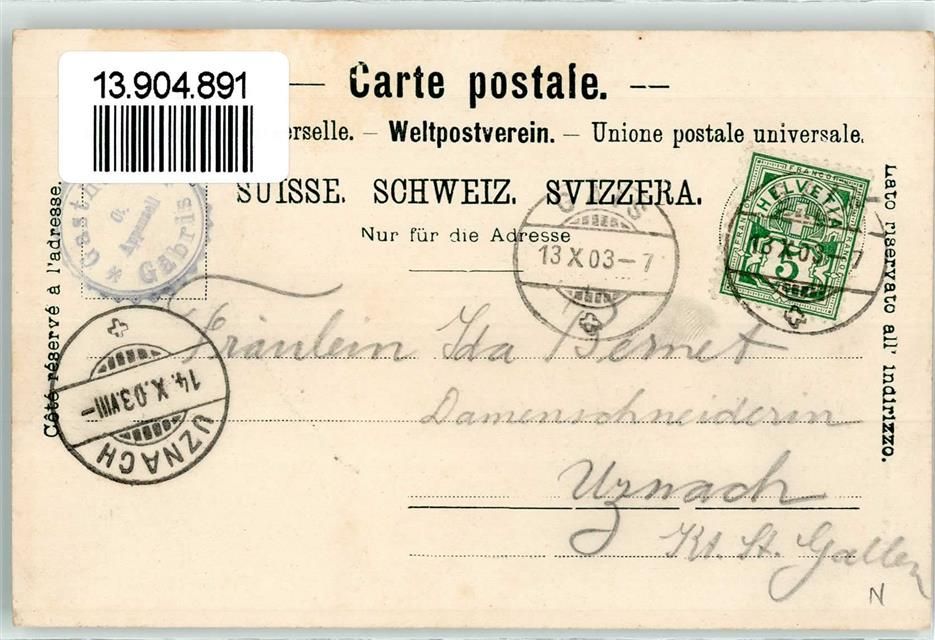 13.904.891
Carte postale.
erselle. – Weltpostverein. – Unione postale universale.
SUISSE. SCHWEIZ. SVIZZERA.
Nur für die Adresse
Côté réservé à l'adresse.
Lato riservato all' indirizzo.
Appenzell
Gäbris
FRANCO
HELVETIA
5
13 X 03–7
GAIS
13 X 03–7
14.X.03.VIII–
UZNACH
Fräulein Ida Bernet
Damenschneiderin
Uznach
Kt. St. Gallen
N